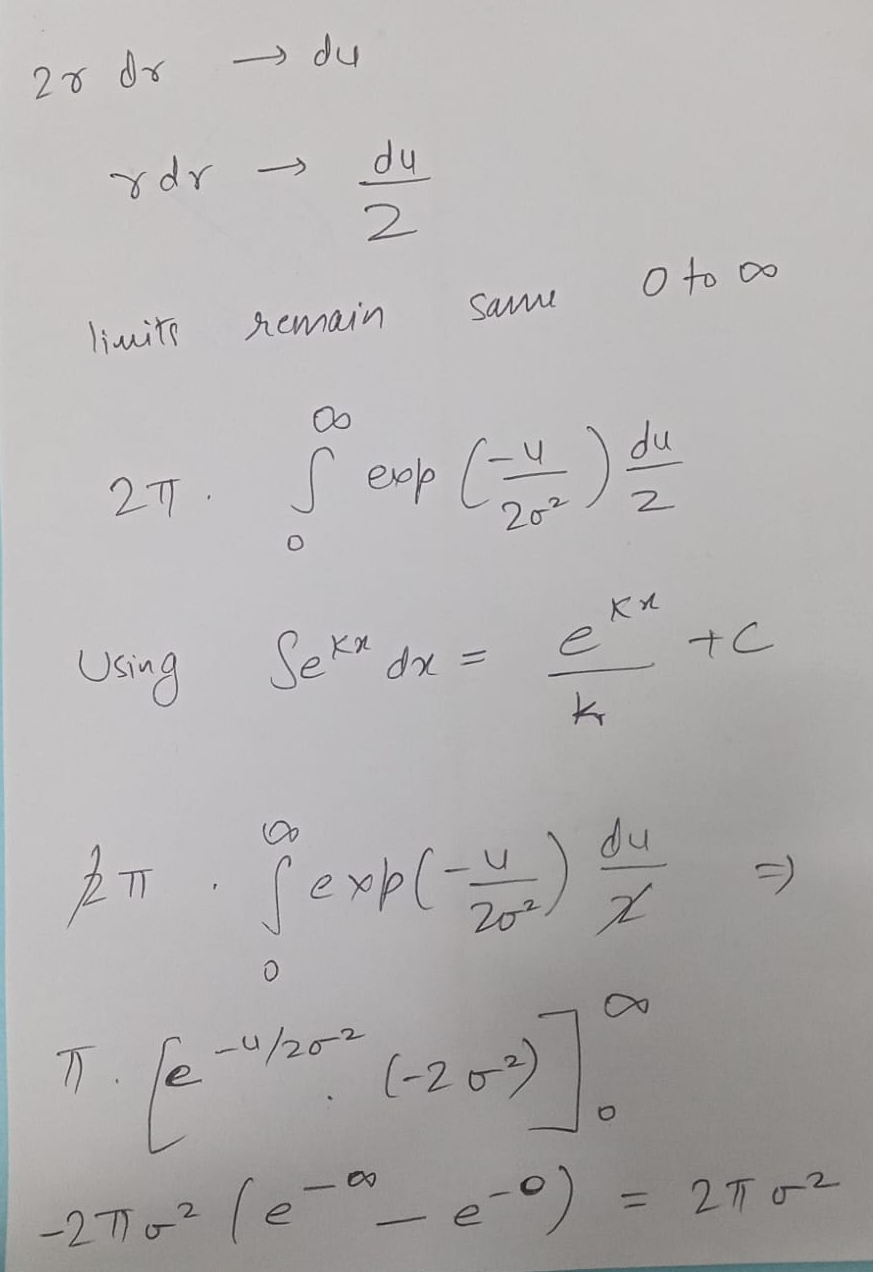 2r dr → du
r dr → du/2
limits remain same 0 to ∞
2π · ∫₀^∞ exp(-u/2σ²) du/2
Using ∫e^(kx) dx = e^(kx)/k + C
2π · ∫₀^∞ exp(-u/2σ²) du/2 ⇒
π · [e^(-u/2σ²) · (-2σ²)]₀^∞
-2πσ² (e^(-∞) - e^(-0)) = 2πσ²